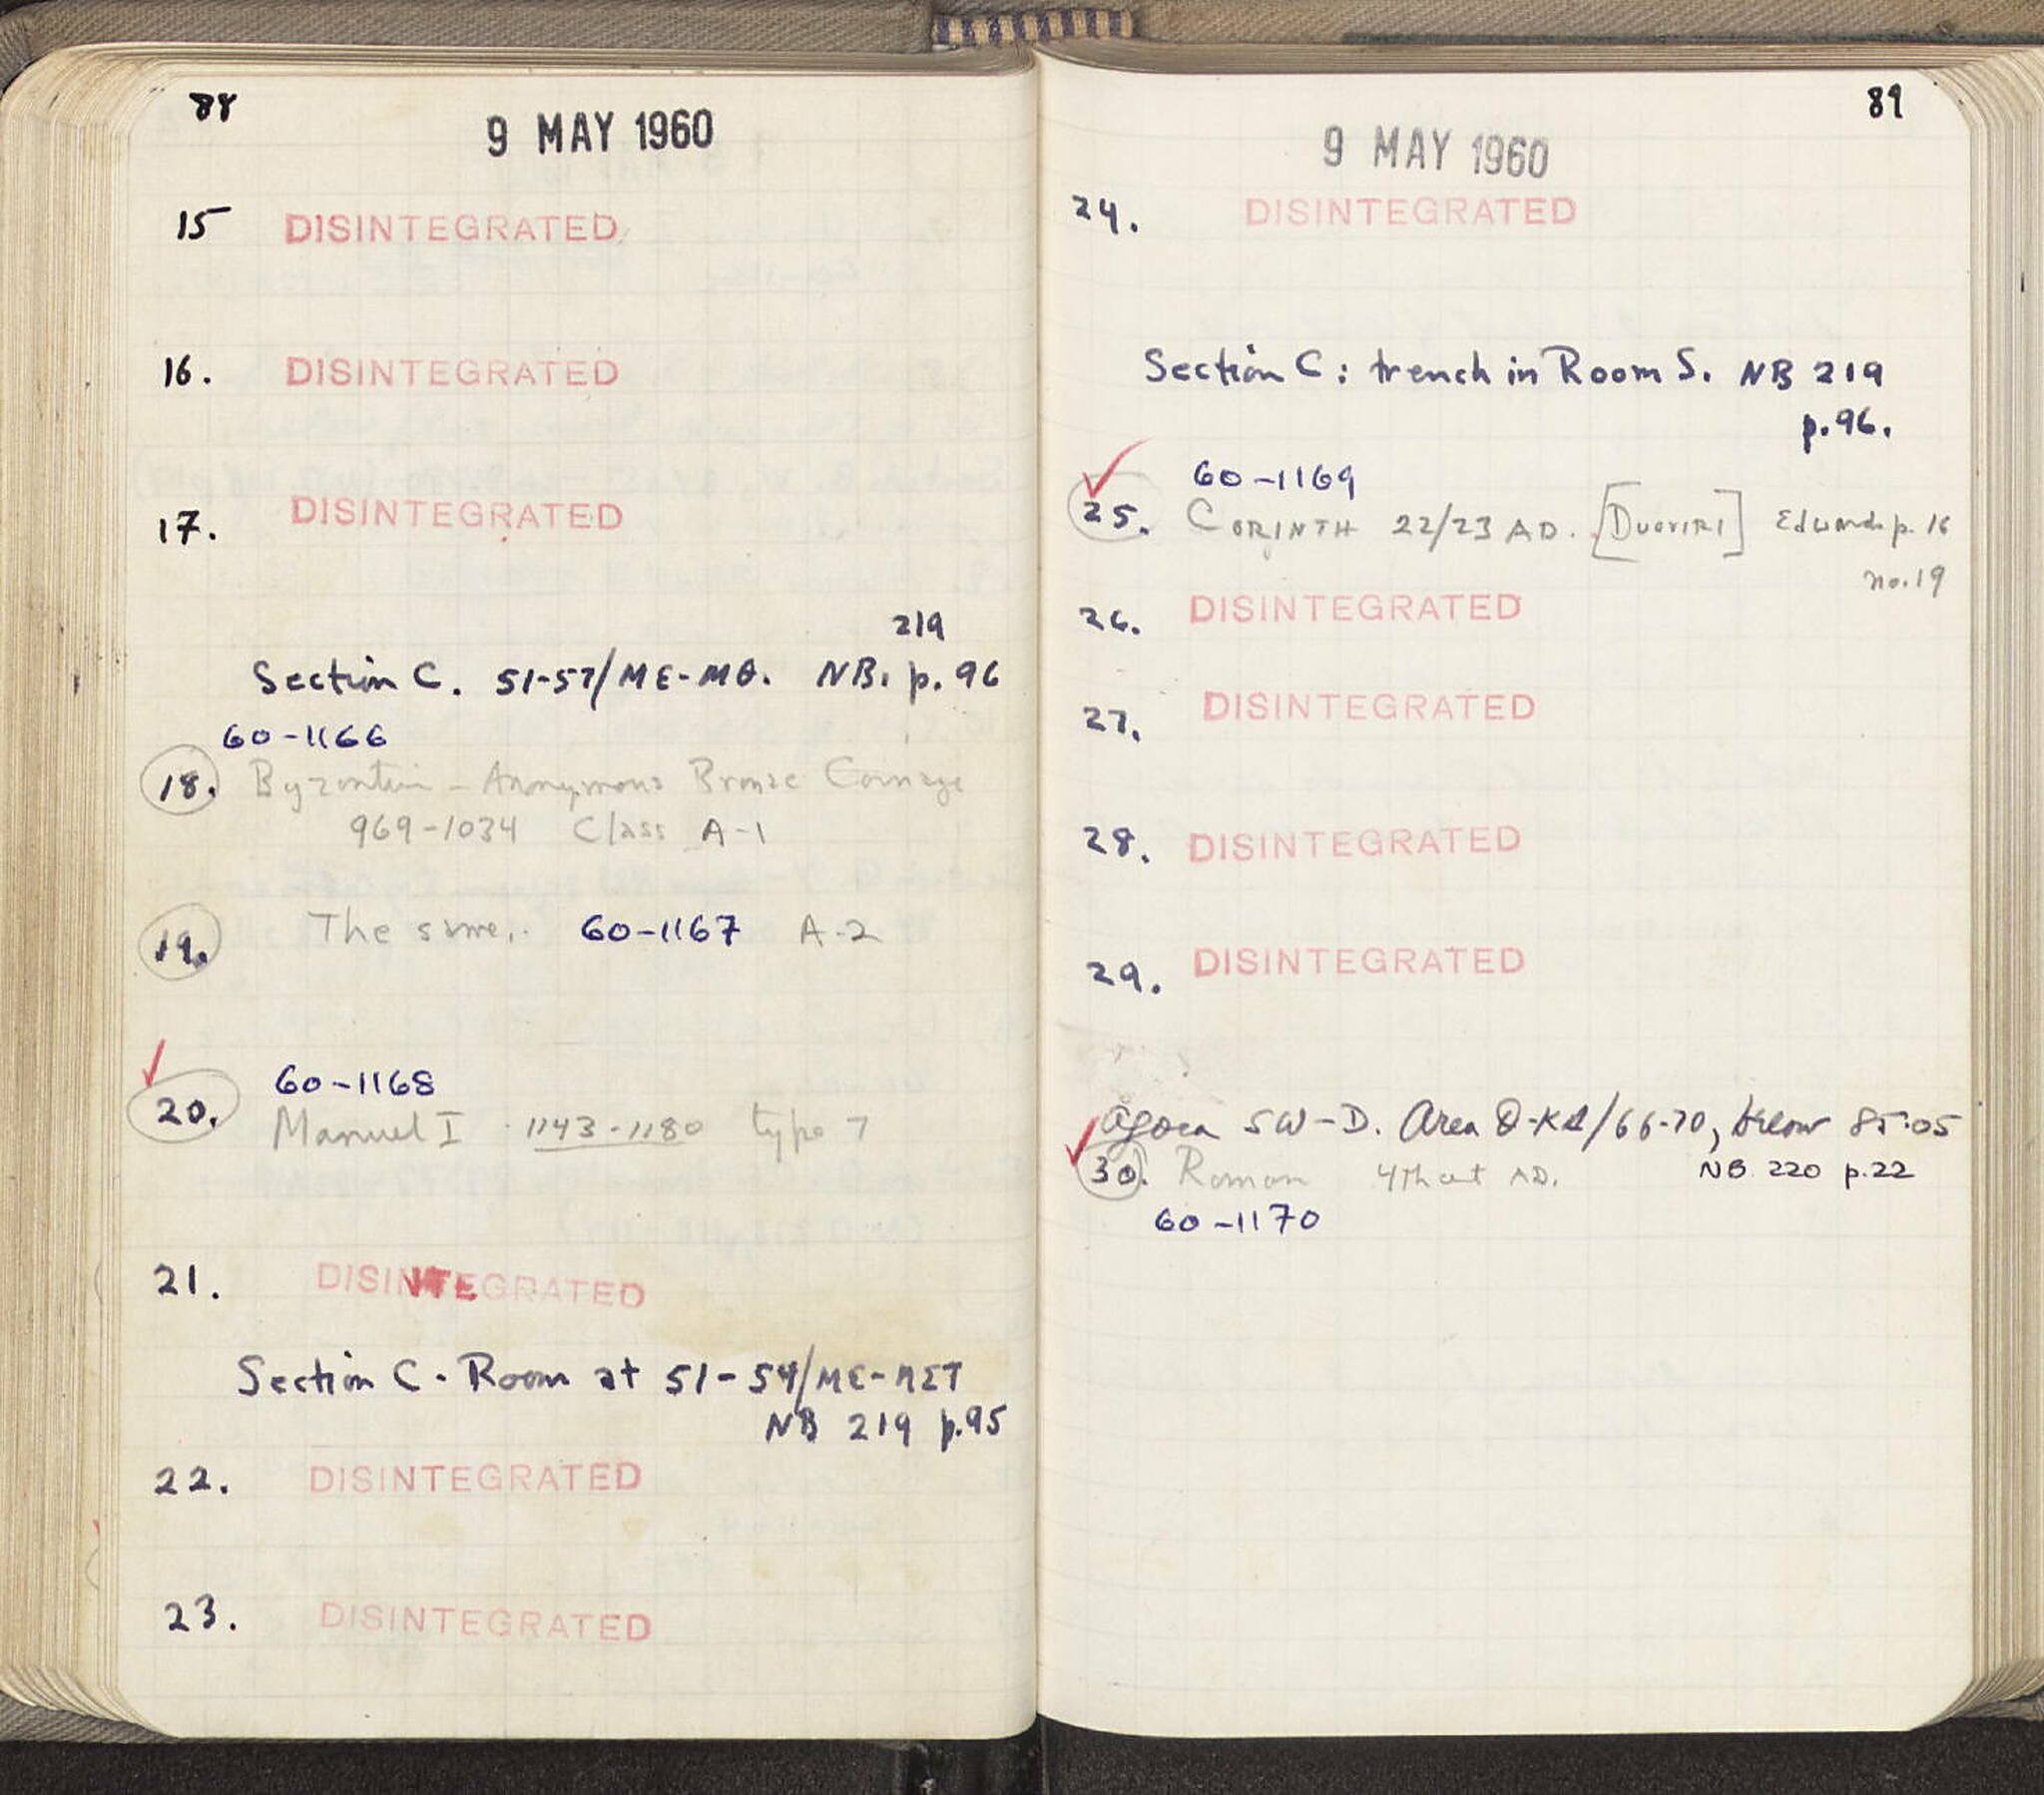 88
9 MAY 1960
15 DISINTEGRATED
16. DISINTEGRATED
17. DISINTEGRATED
219
Section C. 51-57/ME-MΘ. NB. p. 96
60-1166
18. Byzantin - Anonymous Bronze Coinage
969-1034 Class A-1
19. The same. 60-1167 A-2
60-1168
20. Manuel I 1143-1180 type 7
21. DISINTEGRATED
Section C. Room at 51-54/ME-MΣT
NB 219 p.95
22. DISINTEGRATED
23. DISINTEGRATED
89
9 MAY 1960
24. DISINTEGRATED
Section C: trench in Room S. NB 219
p.96.
60-1169
25. CORINTH 22/23 AD. [DUOVIRI] Edwards p. 16
no.19
26. DISINTEGRATED
27. DISINTEGRATED
28. DISINTEGRATED
29. DISINTEGRATED
Agora SW-D. Area /66-70, below 85.05
30. Roman 4th cent AD. NB 220 p.22
60-1170